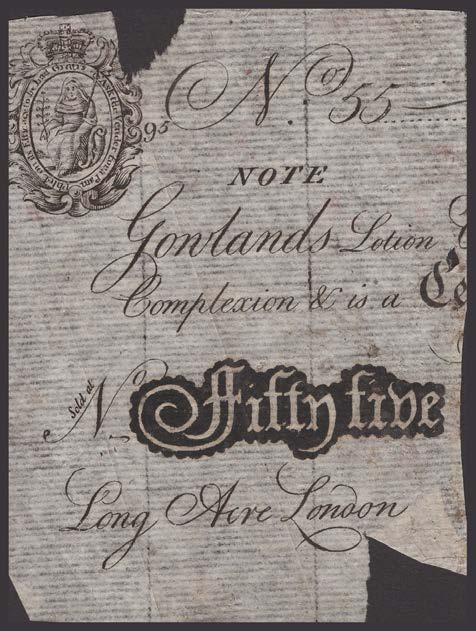 No. 55
95
NOTE
Gowlands Lotion
Complexion & is a
Sold at No. Fifty five
Long Acre London